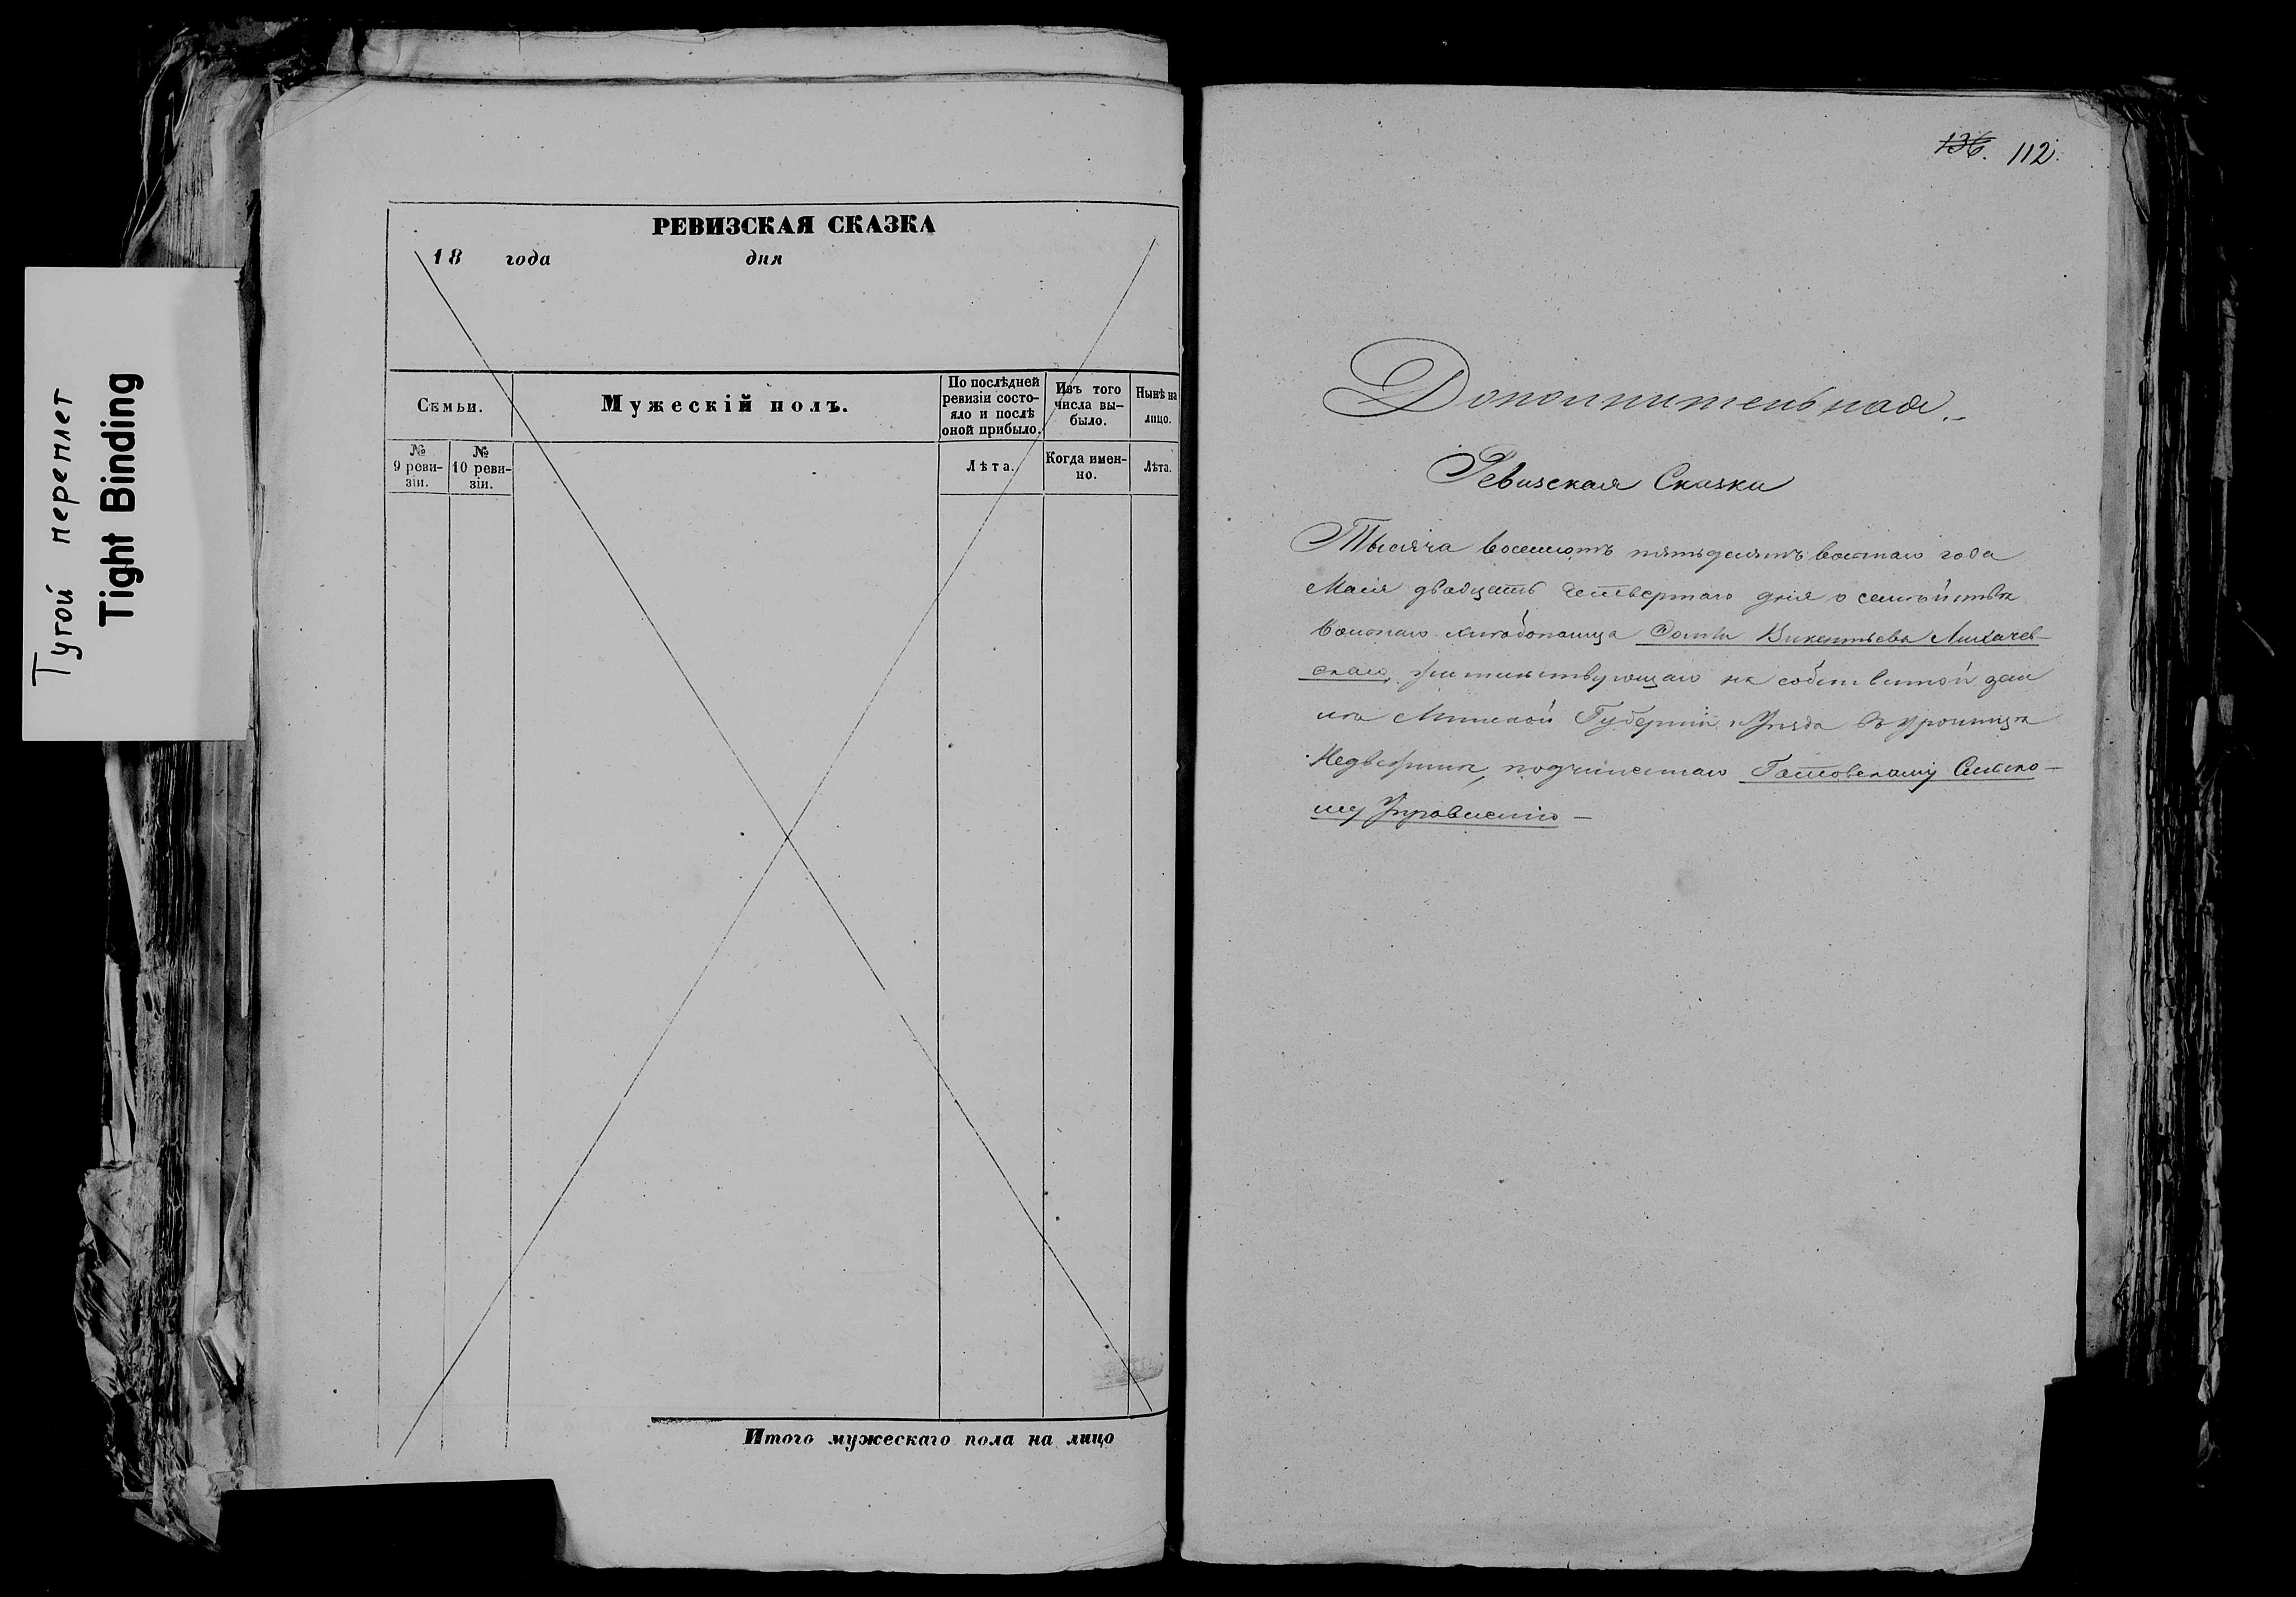 Тугой переплет
Tight Binding
РЕВИЗСКАЯ СКАЗКА
18 года дня
Семьи.
Мужескій полъ.
По послѣдней ревизіи состо-
яло и послѣ
оной прибыло.
Изъ того
числа вы-
было.
Нынѣ на
лицо.
№
9 реви-
зіи.
№
10 реви-
зіи.
Лѣта.
Когда имен-
но.
Лѣта.
Итого мужескаго пола на лицо
136. 112.
Дополнительная
Ревизская Сказка
Тысяча восемьсотъ пятьдесятъ восьмаго года
Маія двадцать четвертаго дня о семействѣ
вольнаго хлѣбопашца Викентьева Лихачев-
скаго, жительствующаго на собственной зем
лѣ Минской Губерніи и Уѣзда въ урочищѣ
подчиненнаго Гатовскому Сельско-
му Управленію —